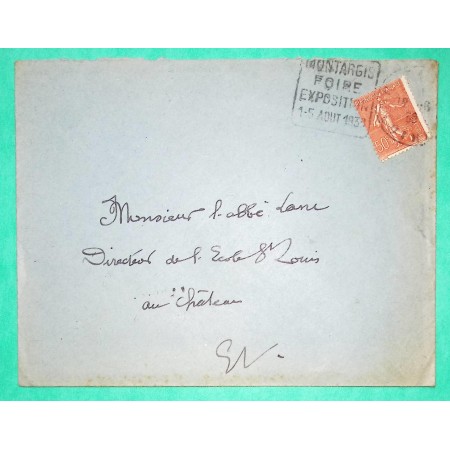 MONTARGIS
FOIRE
EXPOSITION
1-5 AOUT 193
50c
Monsieur l'abbé
Directeur de l'Ecole St Louis
au Château
EV.